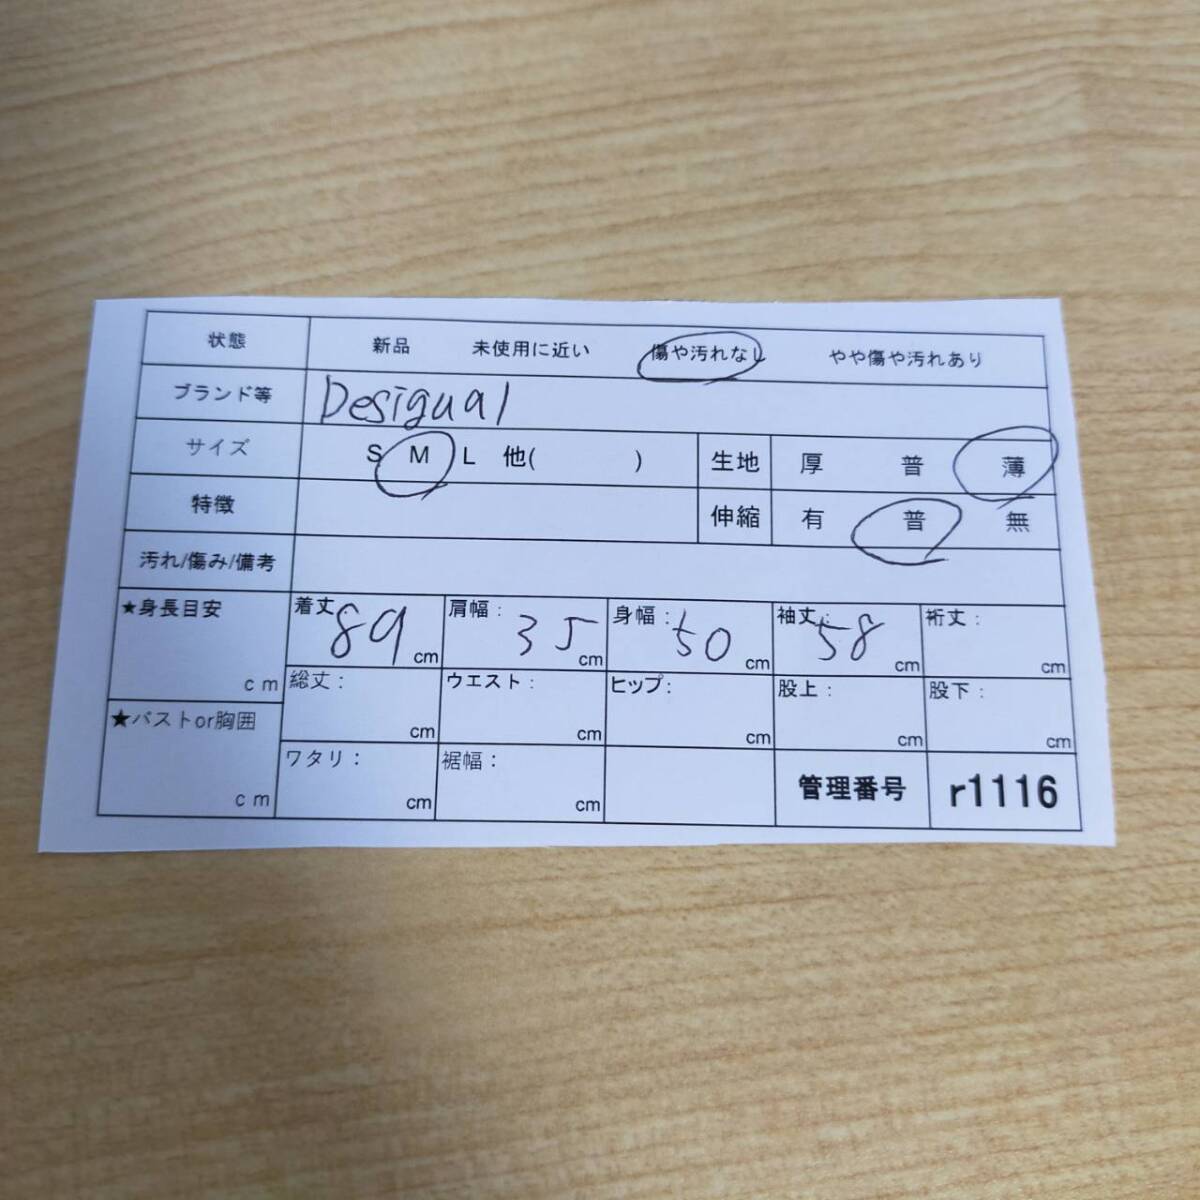 状態 新品 未使用に近い 傷や汚れなし やや傷や汚れあり
ブランド等 Desigual
サイズ S M L 他( ) 生地 厚 普 薄
特徴 伸縮 有 普 無
汚れ/傷み/備考
★身長目安 cm 着丈 89 cm 肩幅: 35 cm 身幅: 50 cm 袖丈: 58 cm 裄丈: cm
総丈: cm ウエスト: cm ヒップ: cm 股上: cm 股下: cm
★バストor胸囲 cm ワタリ: cm 裾幅: cm 管理番号 r1116